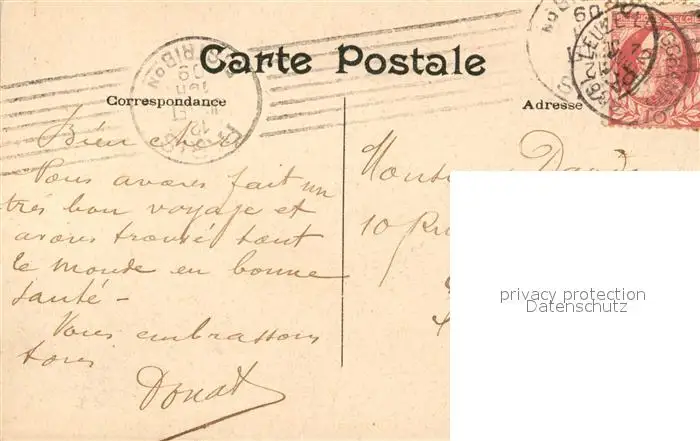 Carte Postale
Correspondance
Adresse
Bien chers
Nous avons fait un
très bon voyage et
avons trouvé tout
le monde en bonne
santé –
Nous embrassons
tous
Donat
10 Rue
privacy protection
Datenschutz